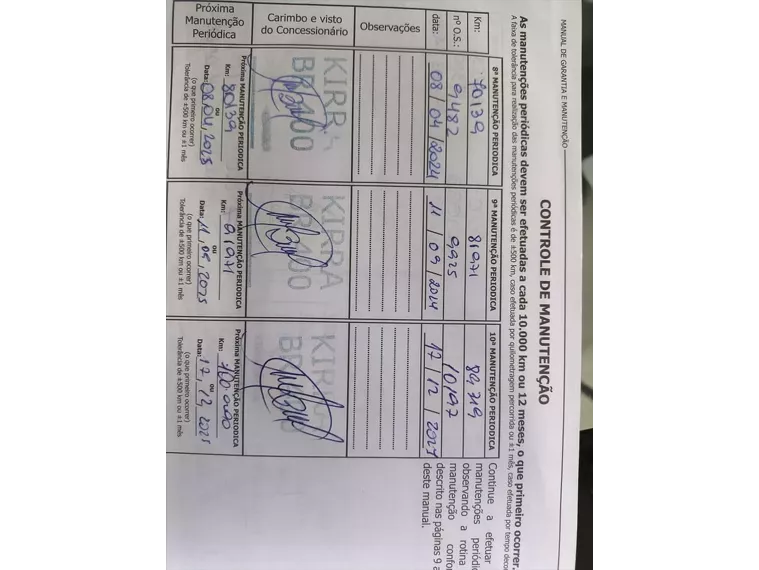 MANUAL DE GARANTIA E MANUTENÇÃO
CONTROLE DE MANUTENÇÃO
As manutenções periódicas devem ser efetuadas a cada 10.000 km ou 12 meses, o que primeiro ocorrer.
A faixa de tolerância para realização das manutenções periódicas é de ±500 km, caso efetuada por quilometragem percorrida ou ±1 mês, caso efetuada por tempo
8ª MANUTENÇÃO PERIÓDICA
Km: 70139
nº O.S.: 9482
data: 08/04/2024
Observações
Carimbo e visto
do Concessionário
KIRRA
BR400
Próxima
Manutenção
Periódica
Próxima MANUTENÇÃO PERIODICA
Km: 80139
ou
Data: 08,04,2025
(o que primeiro ocorrer)
Tolerância de ±500 km ou ±1 mês
9ª MANUTENÇÃO PERIÓDICA
81971
9925
11/09/2024
KIRRA
BR400
Próxima MANUTENÇÃO PERIODICA
Km: 91971
ou
Data: 11,09,2025
(o que primeiro ocorrer)
Tolerância de ±500 km ou ±1 mês
10ª MANUTENÇÃO PERIÓDICA
89749
10197
17/12/2024
Próxima MANUTENÇÃO PERIODICA
Km: 100.000
ou
Data: 17,12,2025
(o que primeiro ocorrer)
Tolerância de ±500 km ou ±1 mês
Continue a efetuar
manutenções
observando a rotina
manutenção
descrito nas páginas 9
deste manual.